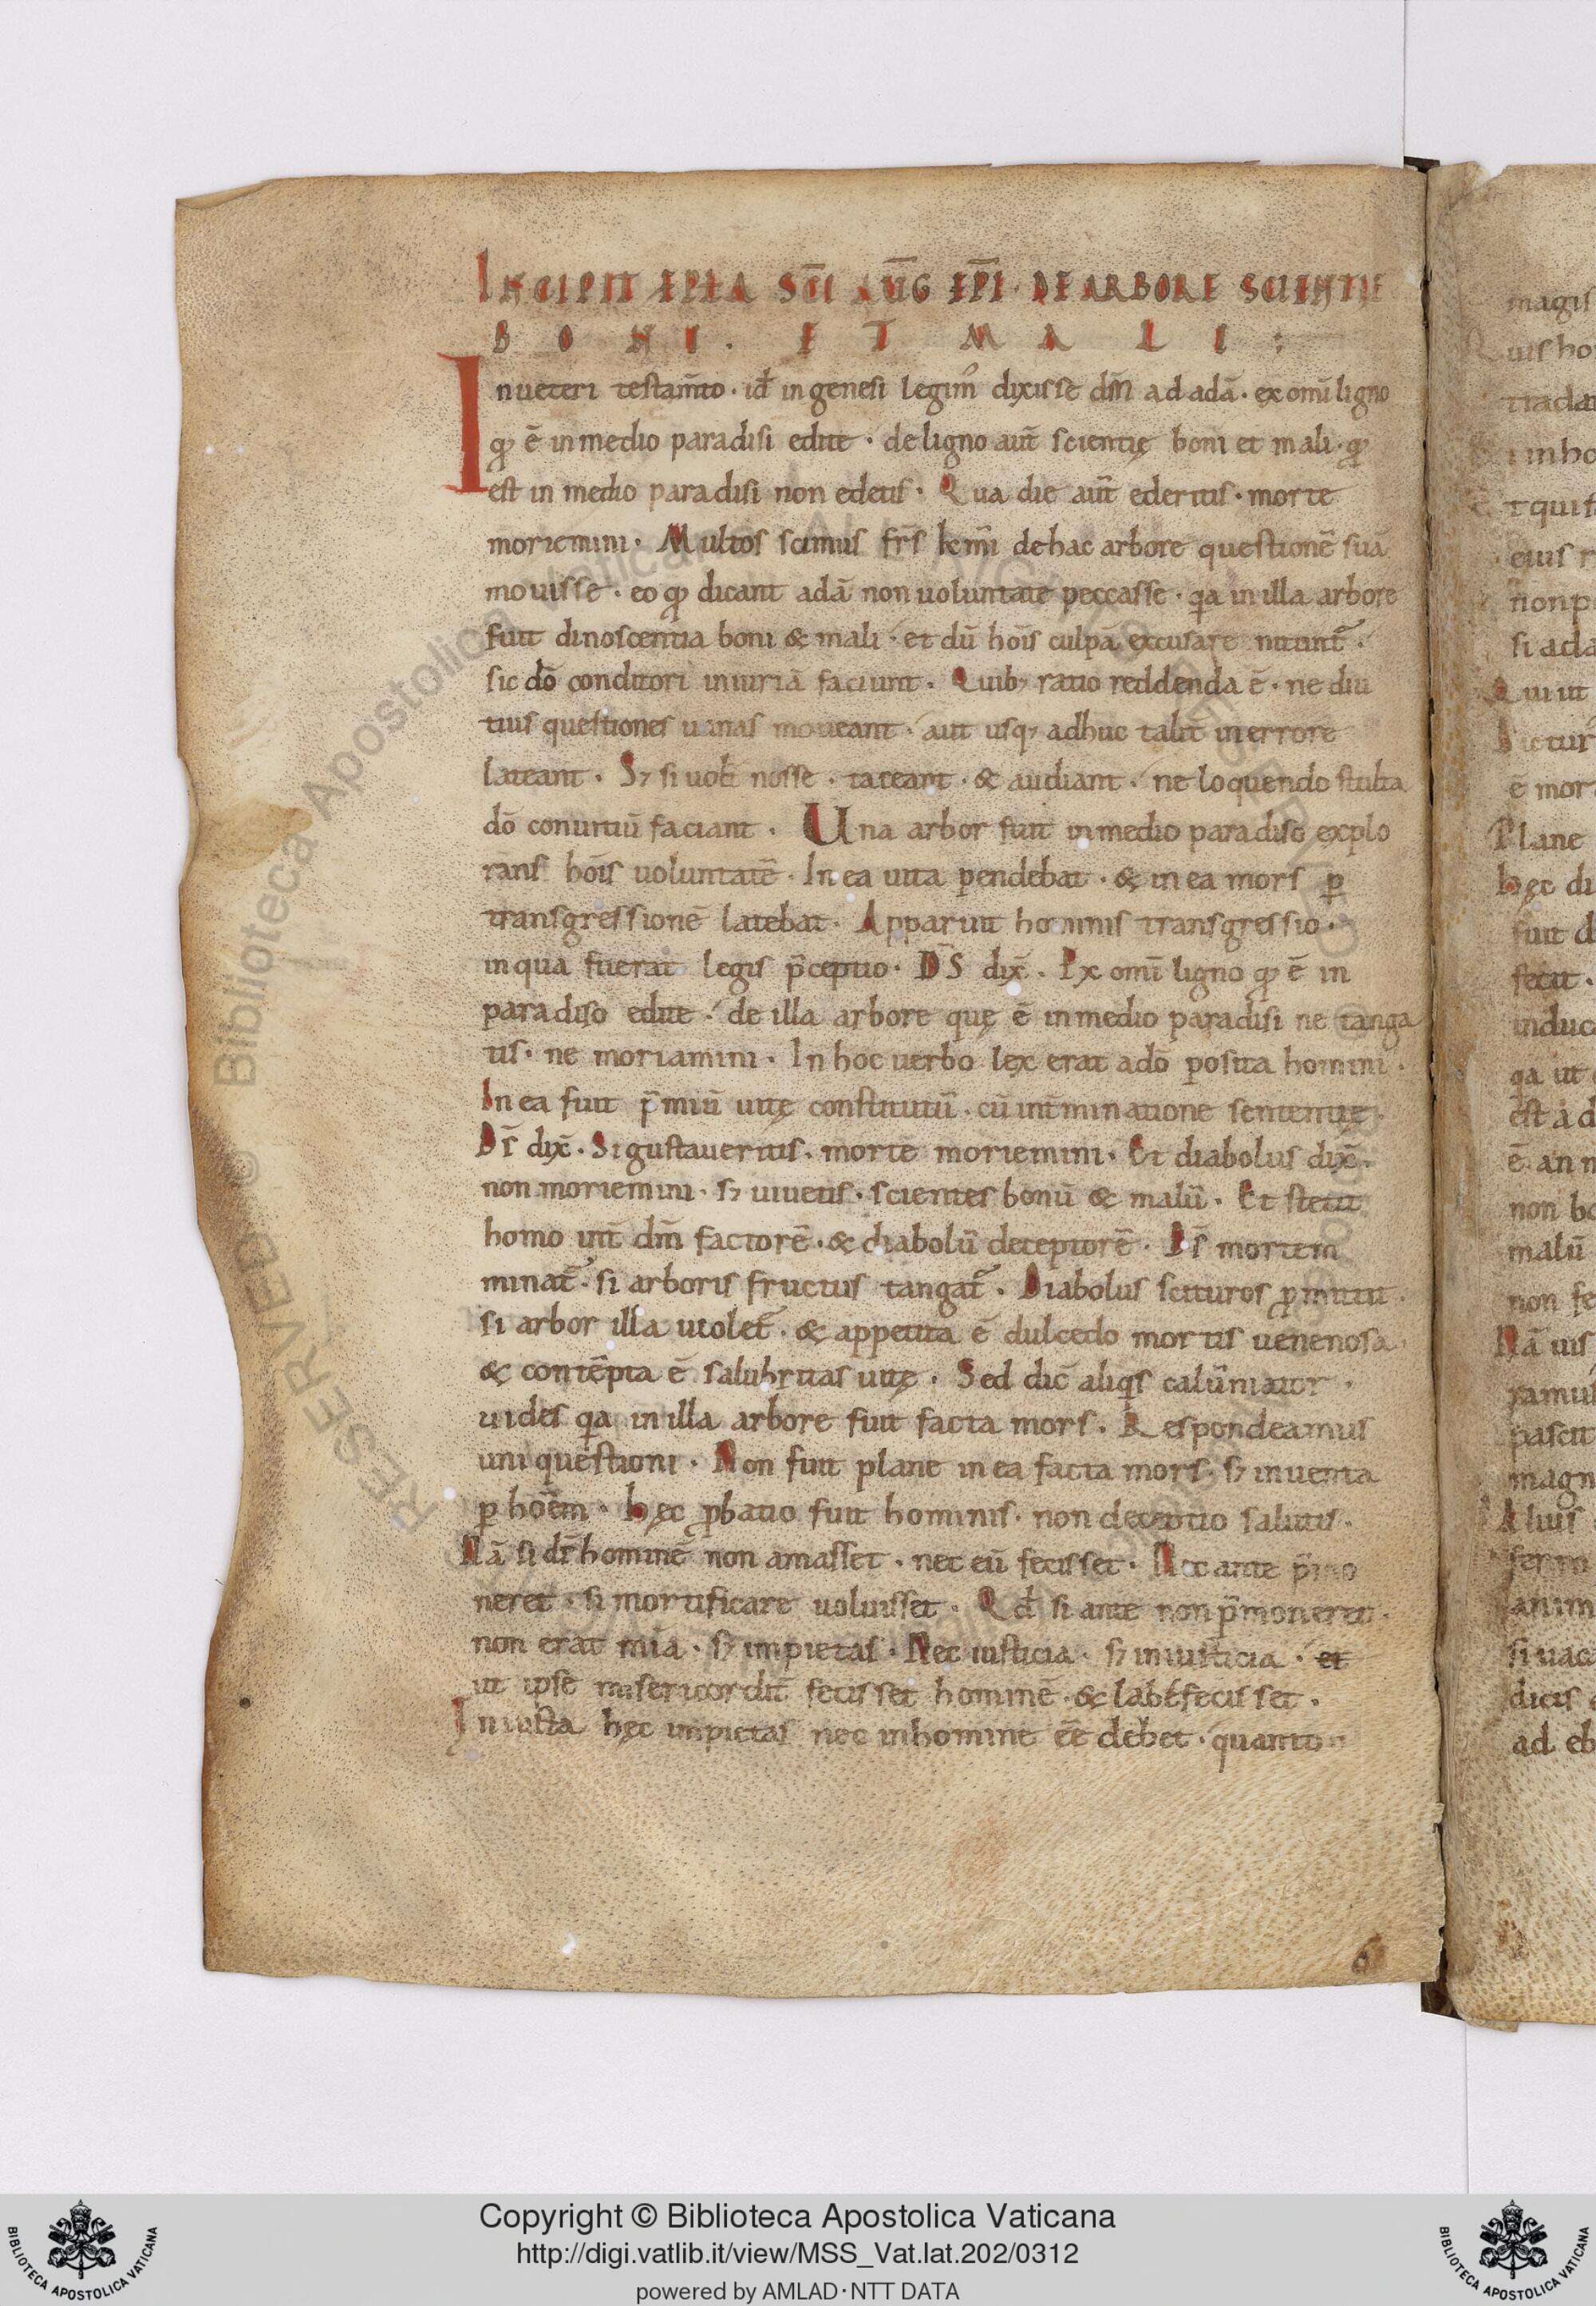 INCIPIT EPLA SC̅I AU̅G EPI̅. DE ARBORE SCIENTIE
BONI. ET MALI:
In ueteri testam̅to. id̅ in genesi legim᷒ dixisse dn̅m ad adā. ex omī ligno
qđ ē in medio paradisi edite. de ligno aut̅ scientię boni et mali. qđ
est in medio paradisi non edetis. Qua die aut̅ ederitis. morte
moriemini. Multos scimus fr̅s km̅i de hac arbore questionē suā
mouisse. eo qđ dicant adā non uoluntate peccasse. qa in illa arbore
fuit dinoscentia boni & mali. et dū hoīs culpā excusare nitunt̅.
sic dō conditori iniuriā faciunt. Quib; ratio reddenda ē. ne diu
tius questiones uanas moueant. aut usq; adhuc talit̅ in errore
lateant. S; si uoł nosse. taceant. & audiant. ne loquendo stulta
dō conuitiū faciant. Una arbor fuit in medio paradiso explo
rans hoīs uoluntatē. In ea uita pendebat. & in ea mors p̱
transgressionē latebat. Apparuit hominis transgressio.
in qua fuerat legis p̅ceptio. DS̅ dix̅. Ex omī ligno qđ ē in
paradiso edite. de illa arbore quę ē in medio paradisi ne tanga
tis. ne moriamini. In hoc uerbo lex erat a dō posita homini.
In ea fuit p̅miū uitę constitutū. cū int̅minatione sententię.
Ds̅ dix̅. Si gustaueritis. morte moriemini. Et diabolus dix̅.
non moriemini. s; uiuetis. scientes bonū & malū. Et stetit
homo int̅ dm̅ factorē. & diabolū deceptorē. Ds̅ mortem
minat̅. si arboris fructus tangat̅. Diabolus scituros p̱mittit.
si arbor illa uiolet̅. & appetita ē dulcedo mortis uenenosa.
& contēpta ē salubritas uitę. Sed dic̅ aliqis calūniator.
uides qa in illa arbore fuit facta mors. Respondeamus
uni questioni. Non fuit plane in ea facta mors. s; inuenta
p̱ hoēm. hęc ꝓbatio fuit hominis. non deceptio salutis.
Nā si ds̅ hominē non amasset. nec eū fecisset. Nec ante p̅mo
neret. si mortificare uoluisset. Qđ si ante non p̅moneret.
non erat mīa. s; impietas. Nec iusticia. s; iniusticia. et
ut ipse misericordit̅ fecisset hominē. & labefecisset.
Iniusta hęc impietas nec in homine eē debet. quanto
Copyright © Biblioteca Apostolica Vaticana
http://digi.vatlib.it/view/MSS_Vat.lat.202/0312
powered by AMLAD·NTT DATA
BIBLIOTECA APOSTOLICA VATICANA
BIBLIOTECA APOSTOLICA VATICANA